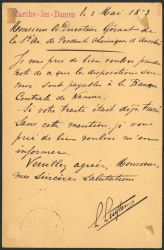 Marche-les-Dames le 2 Mai 18 3
Monsieur le Directeur Gérant de
la Sté An de Produits Chimiques d'
Je me prie de bien vouloir prendre
note de ce que les dispositions sur
moi sont payables à la Banque
Centrale de Namur.
Si votre traite était déjà
Sans cette mention, je vous
prie de bien vouloir m'en
informer.
Veuillez agréer, Monsieur,
mes sincères Salutations